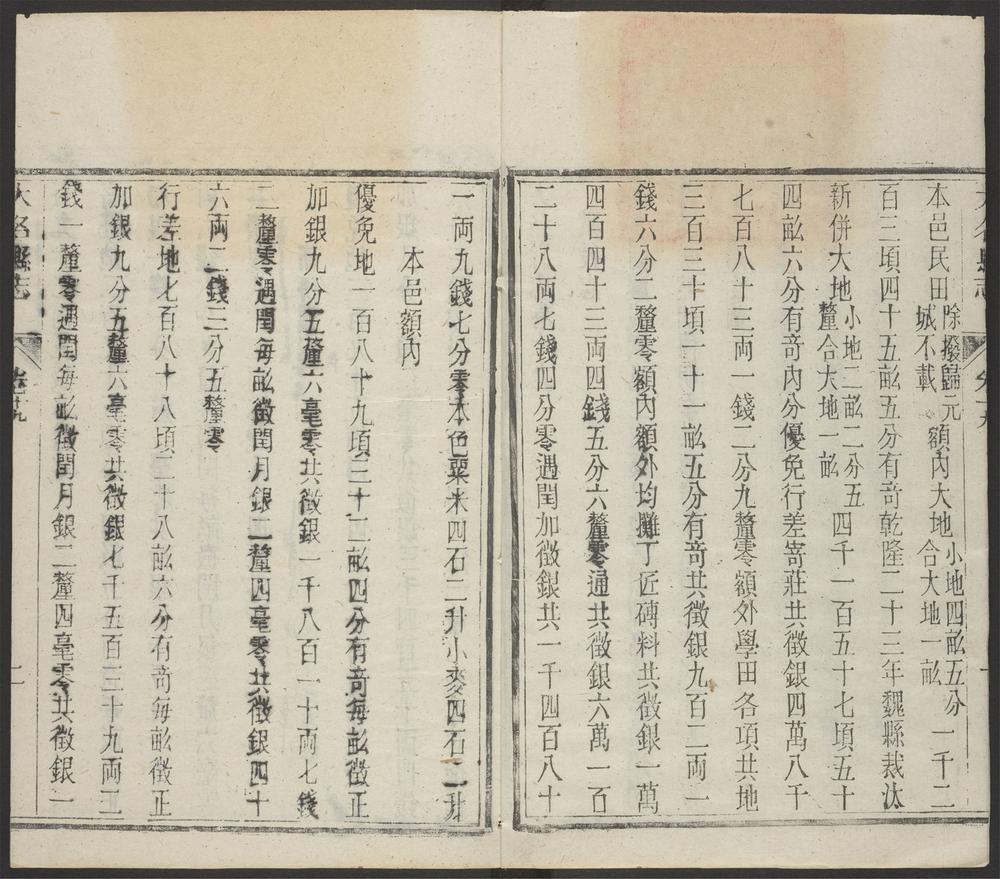 本邑民田除撥歸元城不載額內大地小地四畝五分合大地一畝一千二
百三頃四十五畝五分有奇乾隆二十三年魏縣裁汰
新併大地小地二畝二分五釐合大地一畝四千一百五十七頃五十
四畝六分有奇內分優免行差嵜莊共徵銀四萬八千
七百八十三両一錢二分九釐零額外學田各項共地
三百三十頃一十一畝五分有奇共徵銀九百二両一
錢六分二釐零額內額外均攤丁匠磚料共徵銀一萬
四百四十三両四錢五分六釐零通共徵銀六萬一百
二十八両七錢四分零遇閏加徵銀共一千四百八十
一両九錢七分零本色粟米四石二升小麥四石二升
本邑額內
優免地一百八十九頃三十二畝四分有奇每畝徵正
加銀九分五釐六毫零共徵銀一千八百一十両七錢
二釐零遇閏每畝徵閏月銀二釐四毫零共徵銀四十
六両二錢三分五釐零
行差地七百八十八頃二十八畝六分有奇每畝徵正
加銀九分五釐六毫零共徵銀七千五百三十九両三
錢一釐零遇閏每畝徵閏月銀二釐四毫零共徵銀一
大名縣志